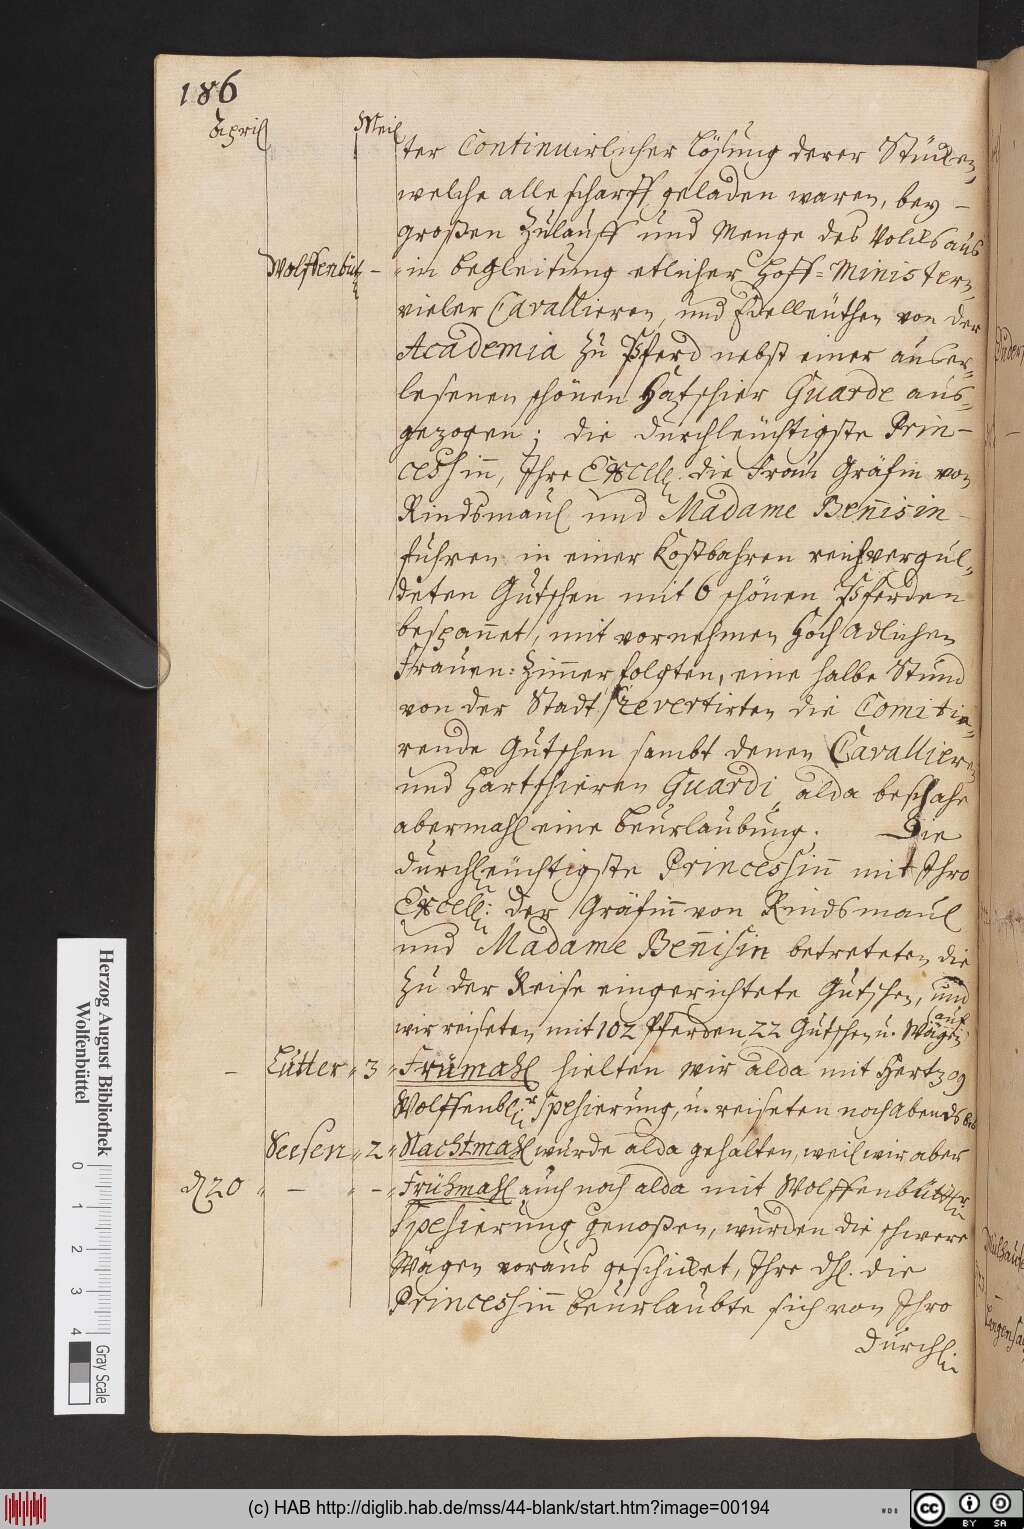 186
April
Meil
ter Continuirlicher Lößung derer Stücken,
welche alle scharff geladen waren, bey –
großen Zulauff und Menge des Volcks aus
Wolffenbüt – in begleitung etlicher Hoff= Ministern,
vieler Cavallieren, und Edelleüthen von der
Academia zu Pferd nebst einer auser=
lesenen schönen Hatschier Guarde aus=
gezogen; die durchleüchtigste Prin=
cessinn, Ihre Excell: die Frau Gräfin von
Rindsmaul und Madame Bennisin
fuhren in einer kostbahren reich vergul=
deten Gutschen mit 6 schönen Pferden
bespannet, mit vornehmen Hoch Adlichen
Frauen=Zimmer folgten, eine halbe Stund
von der Stadt revertirten die Comitir=
rende Gutschen sambt denen Cavallieren
und Hartschieren Guardi, alda beschahe
abermahl eine beurlaubung. Die
durchleüchtigste Princessinn mit Ihro
Excell: der Gräfinn von Rindsmaul
und Madame Bennisin betreteten die
zu der Reise eingerichtete Gutschen, und
wir reiseten mit 102 Pferden 22 Gutschen u. Wägen
auf
– Lutter 3 Frümahl hielten wir alda mit Hertzog
Wolffenbl: Spesierung, u. reiseten noch Abends bis
Seesen 2 Nachtmahl wurde alda gehalten, weil wir aber
20 – – Frühmahl auch noch alda mit Wolffenbüttl:
Spesierung genoßen, wurden die schwere
Wägen voraus geschicket, Ihre dhl. die
Princessinn beurlaubte sich von Ihro
Durchl:
Herzog August Bibliothek
Wolfenbüttel
0 1 2 3 4
Gray Scale
(c) HAB http://diglib.hab.de/mss/44-blank/start.htm?image=00194
WDB
CC BY SA